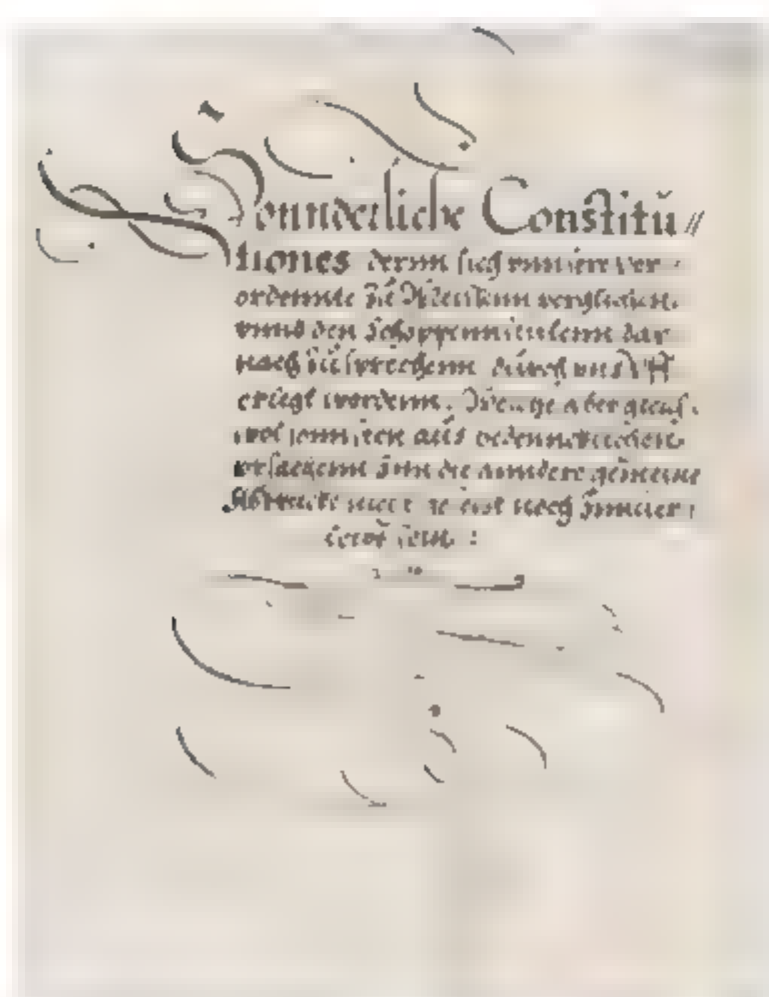 Sonnderliche Constitu=
tiones derenn sich unnsere ver=
ordennte Zů Meissenn verglichen.
unnd den Schoppennstulenn dar
nach zůsprechenn důrch unns
erlegt wordenn. Welche aber gleich
wol sonnsten aůs bedenncklichen
vrsachenn Inn die anndere gemeine
Abdrucke nicht noch Inn
sein :